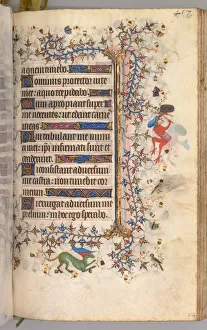 non timebo
Dominus protector vite
mee: a quo trepidabo
Dum apropiant super
me nocentes: ut edant carnes
meas
Qui tribulant me inimici
mei: ipsi infirmati sunt et
ceciderunt
Si consistant adversum
me castra: non timebit cor
meum
Si exurgat adversum me
prelium: in hoc ego sperabo